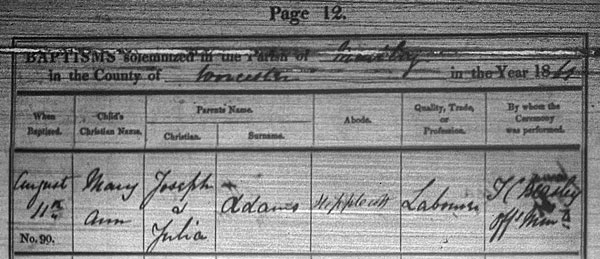 Page 12.
BAPTISMS solemnized in the Parish of
in the County of Worcester in the Year 18
When Baptized.
Child's Christian Name.
Parents Name.
Christian.
Surname.
Abode.
Quality, Trade, or Profession.
By whom the Ceremony was performed.
August
11th
No. 90.
Mary
Ann
Joseph
&
Julia
Adams
Labourer
Offg Minr